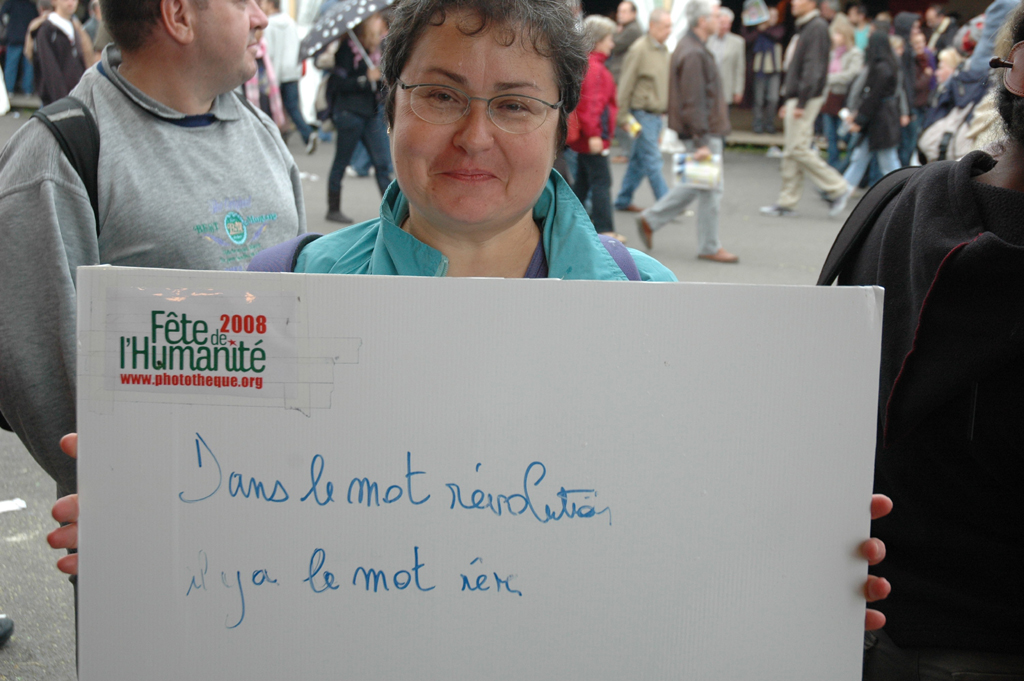 Fête de 2008
l'Humanité
www.phototheque.org
Dans le mot révolution
il y a le mot rêve